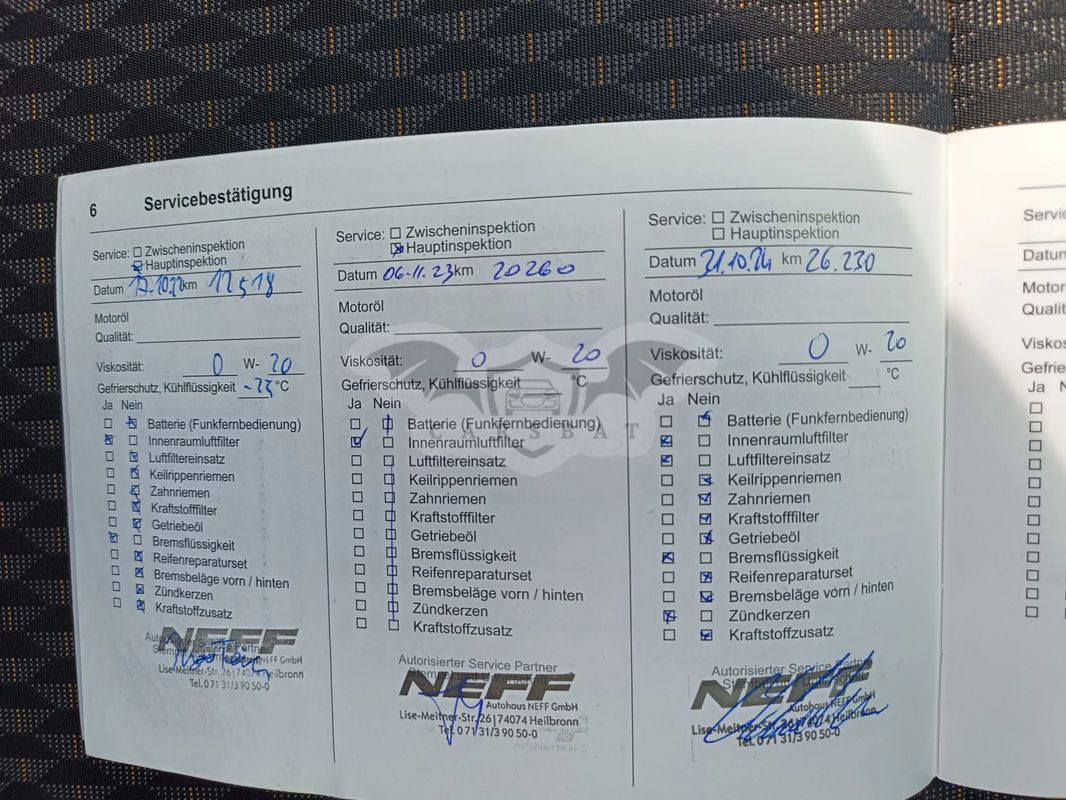 6 Servicebestätigung
Service: Zwischeninspektion
Hauptinspektion
Datum 17.10.22 km 12518
Motoröl
Qualität:
Viskosität: 0 W- 20
Gefrierschutz, Kühlflüssigkeit -23 °C
Ja Nein
Batterie (Funkfernbedienung)
Innenraumluftfilter
Luftfiltereinsatz
Keilrippenriemen
Zahnriemen
Kraftstofffilter
Getriebeöl
Bremsflüssigkeit
Reifenreparaturset
Bremsbeläge vorn / hinten
Zündkerzen
Kraftstoffzusatz
Autorisierter Service Partner
NEFF
Autohaus NEFF GmbH
Lise-Meitner-Str. 26 | 74074 Heilbronn
Tel. 0 71 31/3 90 50-0
Service: Zwischeninspektion
Hauptinspektion
Datum 06.11.23 km 20260
Motoröl
Qualität:
Viskosität: 0 W- 20
Gefrierschutz, Kühlflüssigkeit °C
Ja Nein
Batterie (Funkfernbedienung)
Innenraumluftfilter
Luftfiltereinsatz
Keilrippenriemen
Zahnriemen
Kraftstofffilter
Getriebeöl
Bremsflüssigkeit
Reifenreparaturset
Bremsbeläge vorn / hinten
Zündkerzen
Kraftstoffzusatz
Autorisierter Service Partner
Stempel und Unterschrift
NEFF
Autohaus NEFF GmbH
Lise-Meitner-Str. 26 | 74074 Heilbronn
Tel. 0 71 31/3 90 50-0
Autohaus NEFF G
Service: Zwischeninspektion
Hauptinspektion
Datum 31.10.24 km 26.230
Motoröl
Qualität:
Viskosität: 0 W- 20
Gefrierschutz, Kühlflüssigkeit °C
Ja Nein
Batterie (Funkfernbedienung)
Innenraumluftfilter
Luftfiltereinsatz
Keilrippenriemen
Zahnriemen
Kraftstofffilter
Getriebeöl
Bremsflüssigkeit
Reifenreparaturset
Bremsbeläge vorn / hinten
Zündkerzen
Kraftstoffzusatz
Autorisierter Service Partner
Stempel und Unterschrift
NEFF
Autohaus NEFF GmbH
Lise-Meitner-Str. 26 | 74074 Heilbronn
Tel. 0 71 31/3 90 50-0
CARSBAT
Servi
Datum
Motor
Qualit
Viskos
Gefrie
Ja N